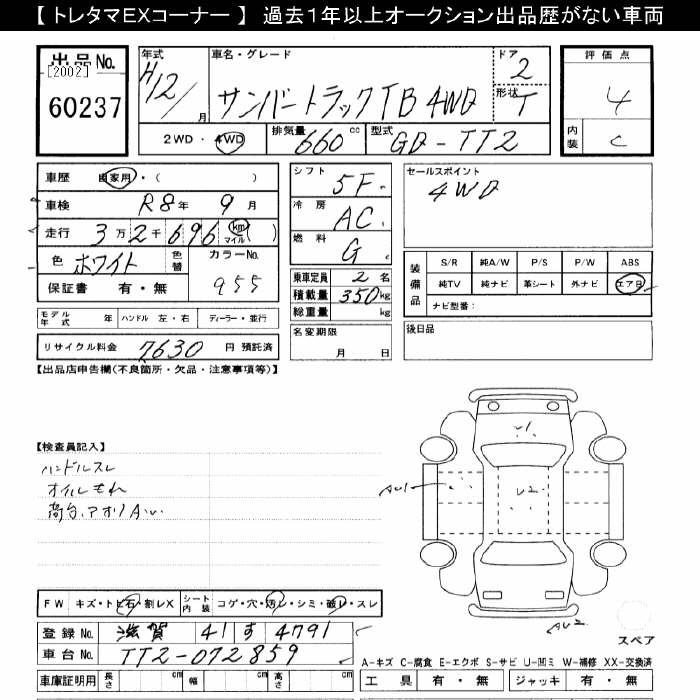 【 トレタマEXコーナー 】 過去1年以上オークション出品歴がない車両
出品No. 年式 車名・グレード ドア 評価点
[2002] H12/ 月 サンバートラックTB 4WD 2 4
60237 形状 T
2WD・4WD 排気量 660 cc 型式 GD-TT2 内装 C
車歴 自家用・( ) シフト 5F セールスポイント
車検 R8年 9月 冷房 AC 4WD
走行 3万2千696 km マイル ( ) 燃料 G
色 ホワイト 色替 カラーNo. 955 装備品 S/R 純A/W P/S P/W ABS
保証書 有・無 乗車定員 2名 純TV 純ナビ 革シート 外ナビ エアB
積載量 350kg ナビ型番:
モデル年式 年 ハンドル 左・右 ディーラー・並行 総重量 kg
リサイクル料金 7630 円 預託済 名変期限 月 日 後日品
【出品店申告欄(不良箇所・欠品・注意事項等)】
【検査員記入】
ハンドルスレ
オイルもれ
荷台、アオリAい
AU1 U1 U2
AU2
FW キズ・トビ石・割レX シート内装 コゲ・穴・汚レ・シミ・破レ・スレ
登録No. 滋賀 41 す 4791 スペア
車台No. TT2-072859 A-キズ C-腐食 E-エクボ S-サビ U-凹ミ W-補修 XX-交換済
車庫証明用 長さ cm 幅 cm 高さ cm 工具 有・無 ジャッキ 有・無